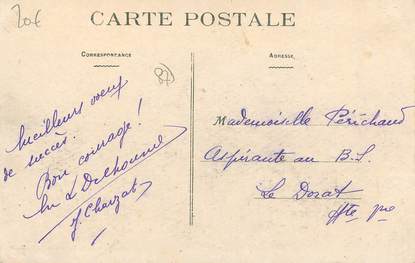 20€
CARTE POSTALE
CORRESPONDANCE
ADRESSE
87
Meilleurs voeux
de succès.
Bon courage!
L Delhoume
J. Chazat
Mademoiselle Périchaud
Aspirante au B.S.
Le Dorat
Hte Vne